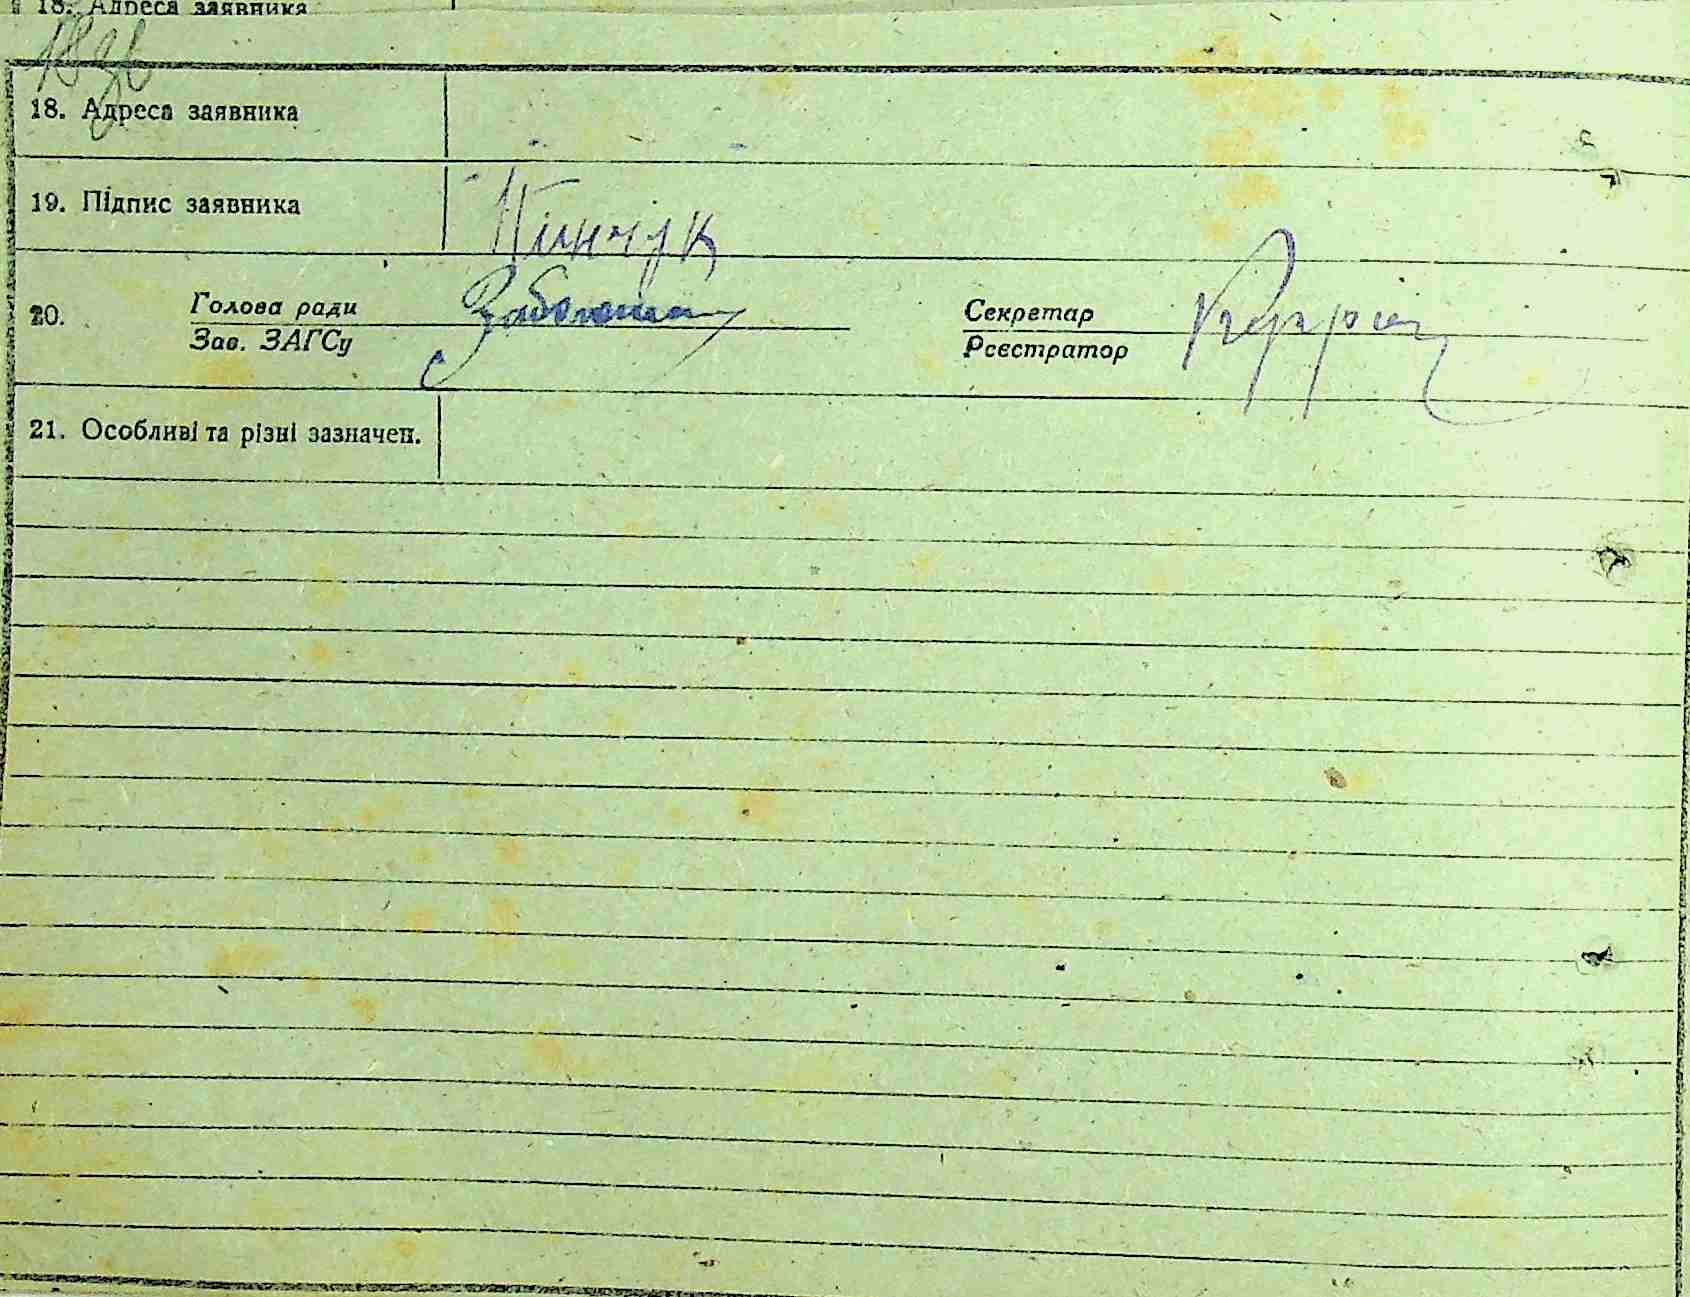 18. Адреса заявника
18. Адреса заявника
19. Підпис заявника Пінчук
20. Голова ради Секретар
Зав. ЗАГСу Реєстратор
21. Особливі та різні зазначен.